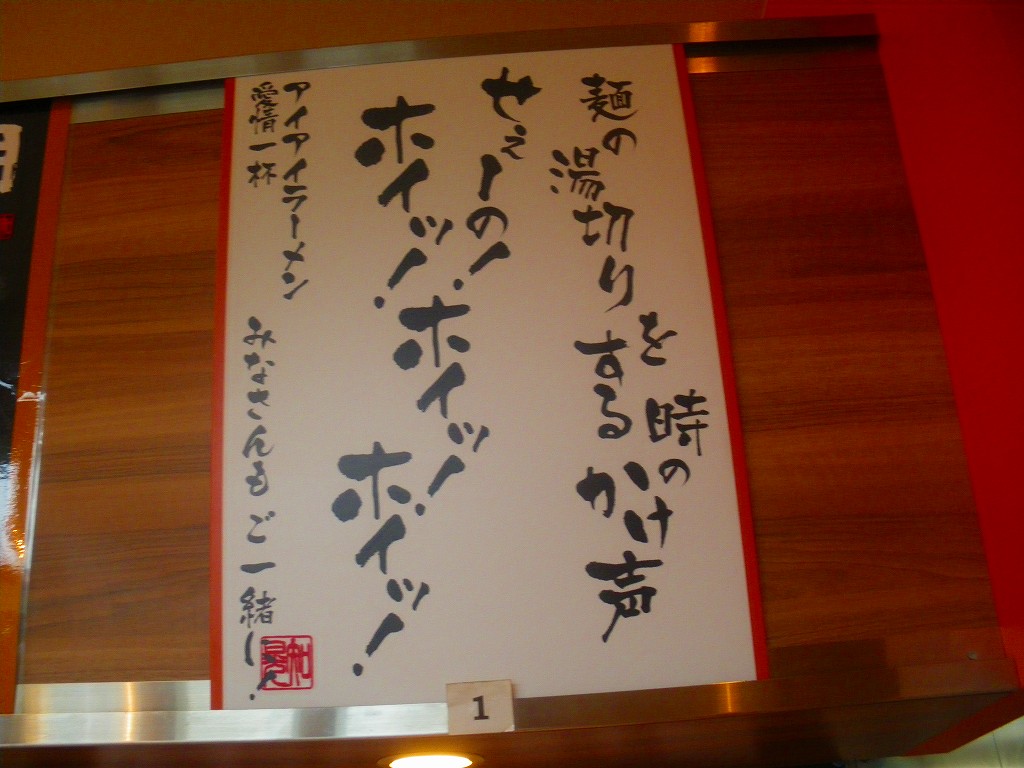 麺の湯切りをする時のかけ声
せぇーの!
ホイッ!ホイッ!ホイッ!
アイアイラーメン
愛情一杯
みなさんもご一緒に!
1